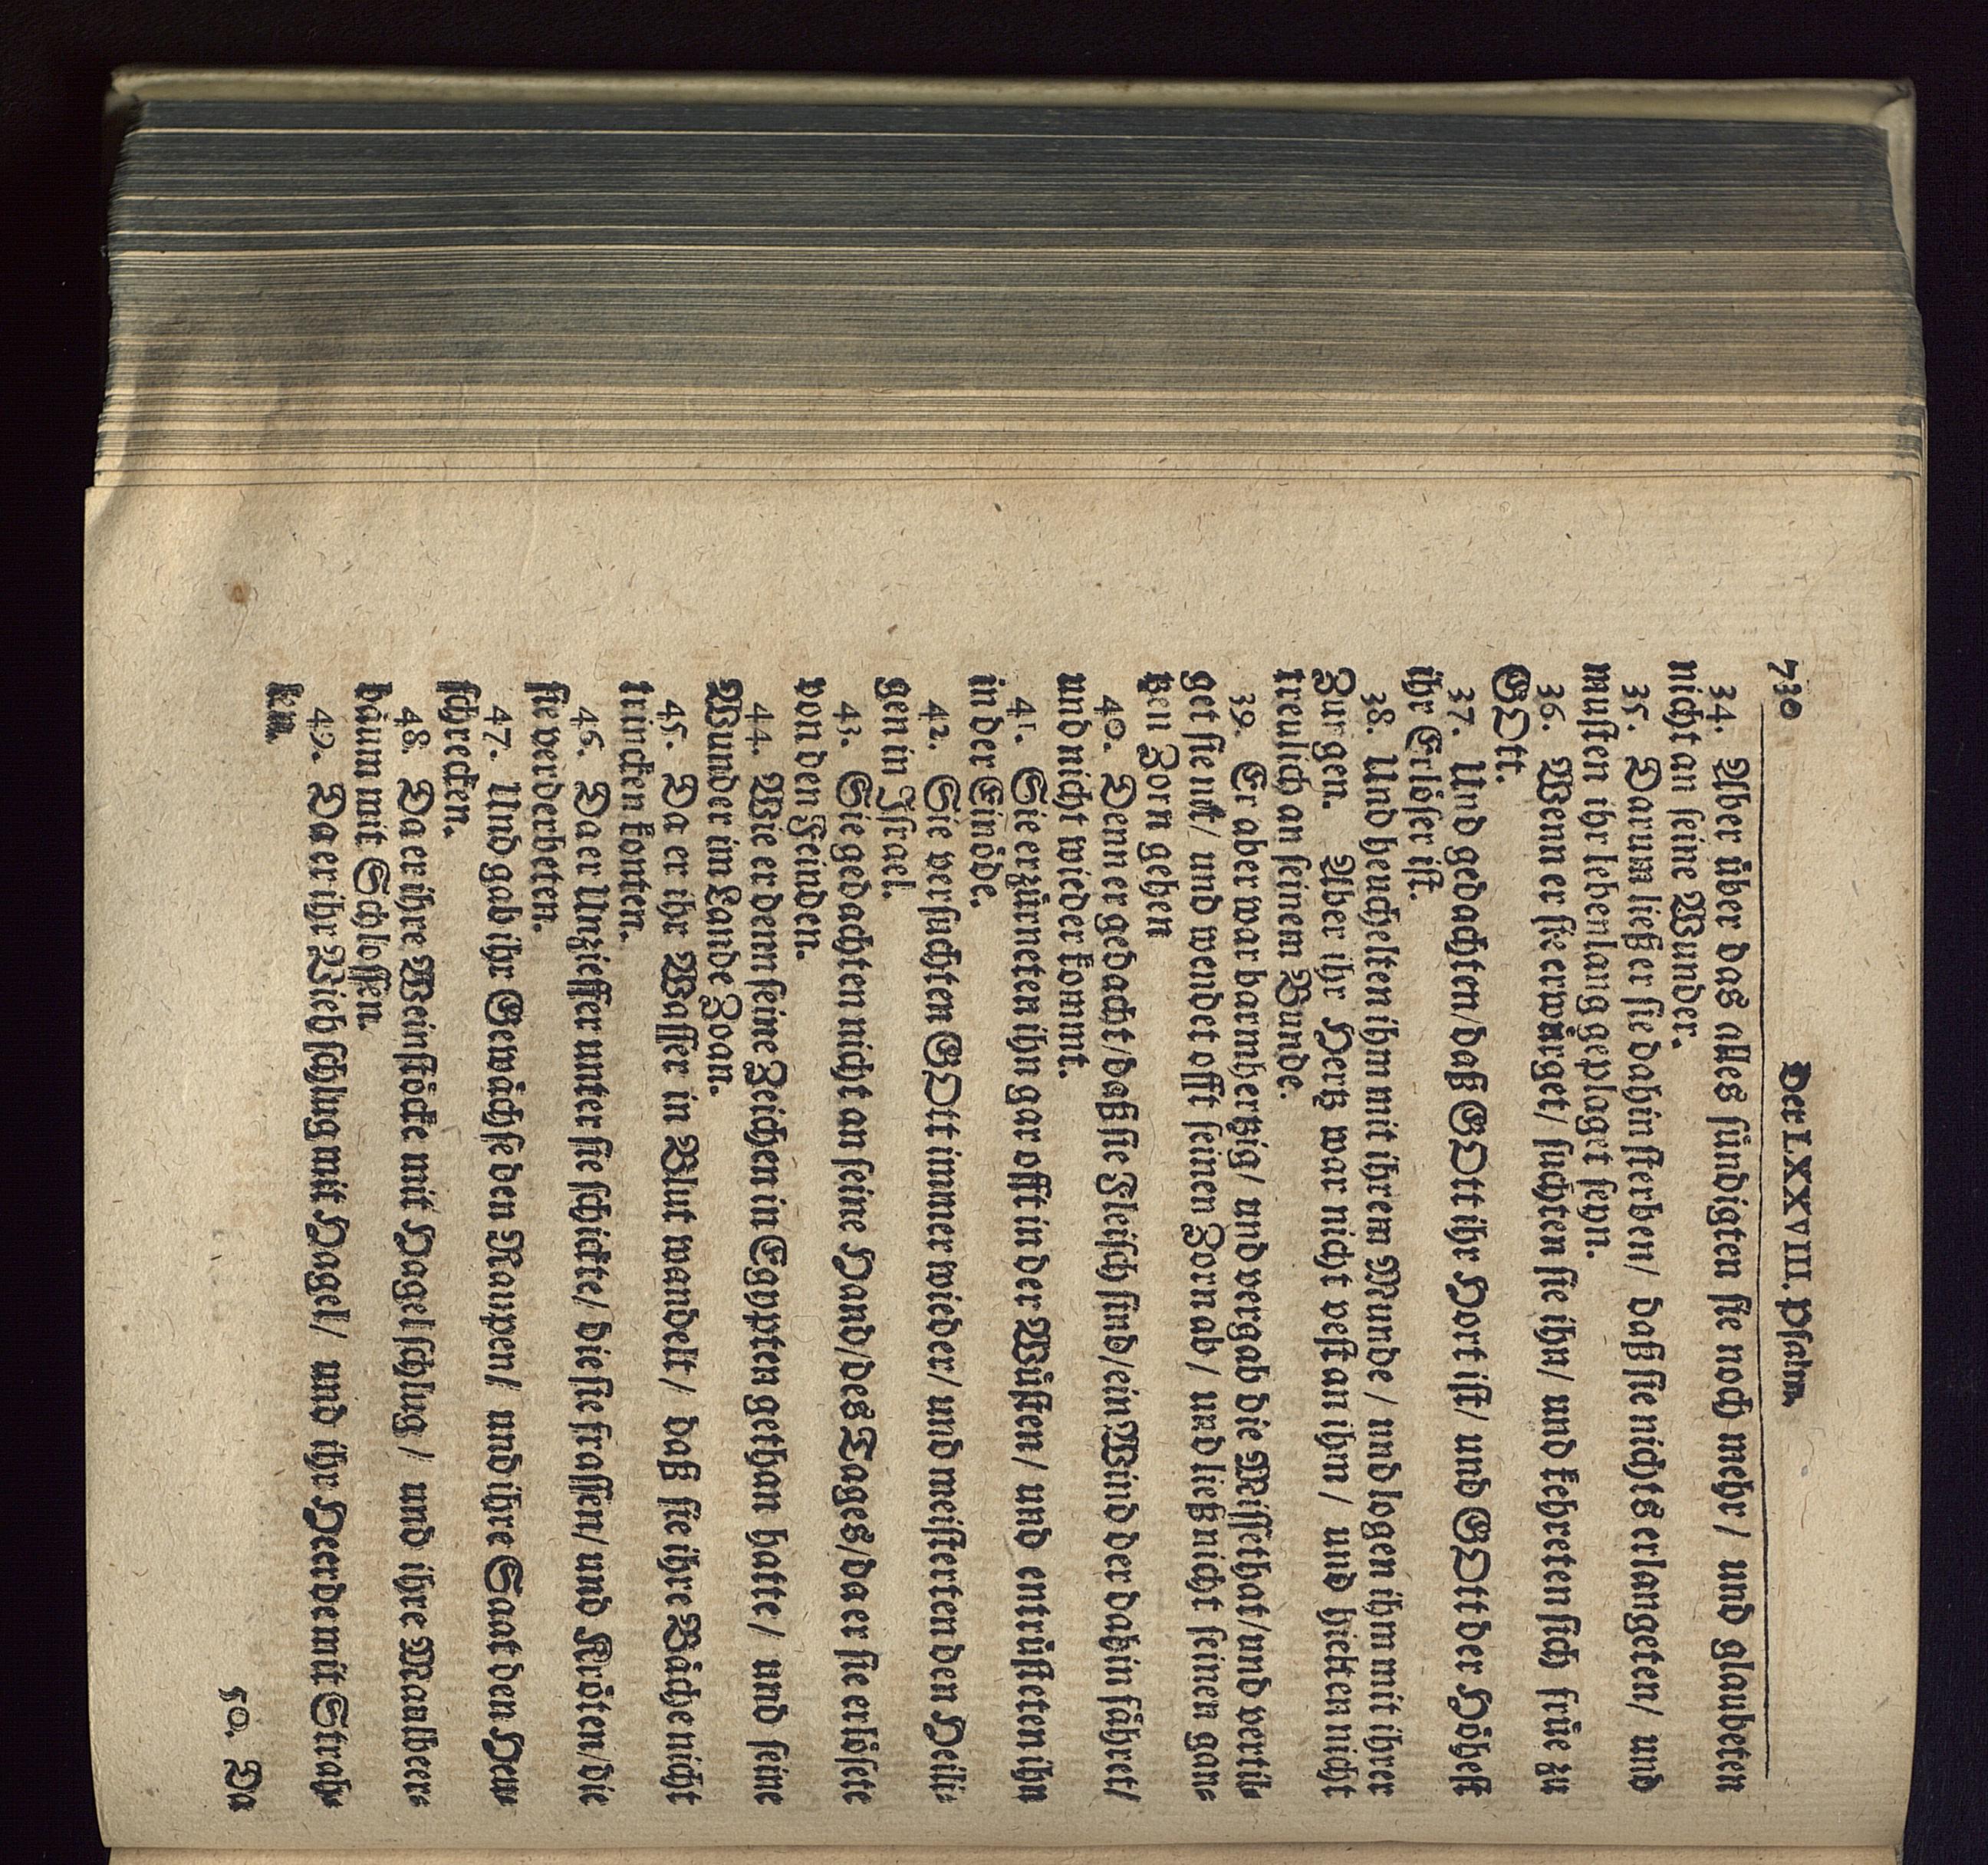 730 Der LXXVIII. Psalm.
34. Aber über daß alles sündigten sie noch mehr / und glaubeten
nicht an seine Wunder.
35. Darum ließ er sie dahin sterben / daß sie nichts erlangeten / und
musten ihr lebenlang geplaget seyn.
36. Wenn er sie erwürget / suchten sie ihn / und kehreten sich früe zu
GOtt.
37. Und gedachten / daß GOtt ihr Hort ist / und GOtt der Höhest
ihr Erlöser ist.
38. Und heuchelten ihm mit ihrem Munde / und logen ihm mit ihrer
Zungen. Aber ihr Hertz war nicht vest an ihm / und hielten nicht
treulich an seinem Bunde.
39. Er aber war barmhertzig / und vergab die Missethat / und vertil-
get sie nit / und wendet offt seinen Zorn ab / und ließ nicht seinen gan-
tzen Zorn gehen
40. Denn er gedacht / daß sie Fleisch sind / ein Wind der dahin fähret /
und nicht wieder kommt.
41. Sie erzürneten ihn gar offt in der Wüsten / und entrüsteten ihn
in der Einöde.
42. Sie versuchten GOtt immer wieder / und meisterten den Heili-
gen in Israel.
43. Sie gedachten nicht an seine Hand / des Tages / da er sie erlösete
von den Feinden.
44. Wie er denn seine Zeichen in Egypten gethan hatte / und seine
Wunder im Lande Zoan.
45. Da er ihr Wasser in Blut wandelt / daß sie ihre Bäche nicht
trincken konten.
46. Da er Unzieffer unter sie schickte / die sie frassen / und Kröten / die
sie verderbeten.
47. Und gab ihr Gewächse den Raupen / und ihre Saat den Hew-
schrecken.
48. Da er ihre Weinstöcke mit Hagel schlug / und ihre Maulbeer-
bäum mit Schlossen.
49. Da er ihr Vieh schlug mit Hagel / und ihr Heerde mit Strah-
len.
50. Da